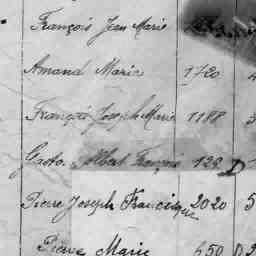 François Jean Marie
Amand Marie 1720 4
François Joseph Marie 1188 3
Gaston Albert François 128 D
Pierre Joseph Francisque 2020 5
Pierre Marie 650 D 2